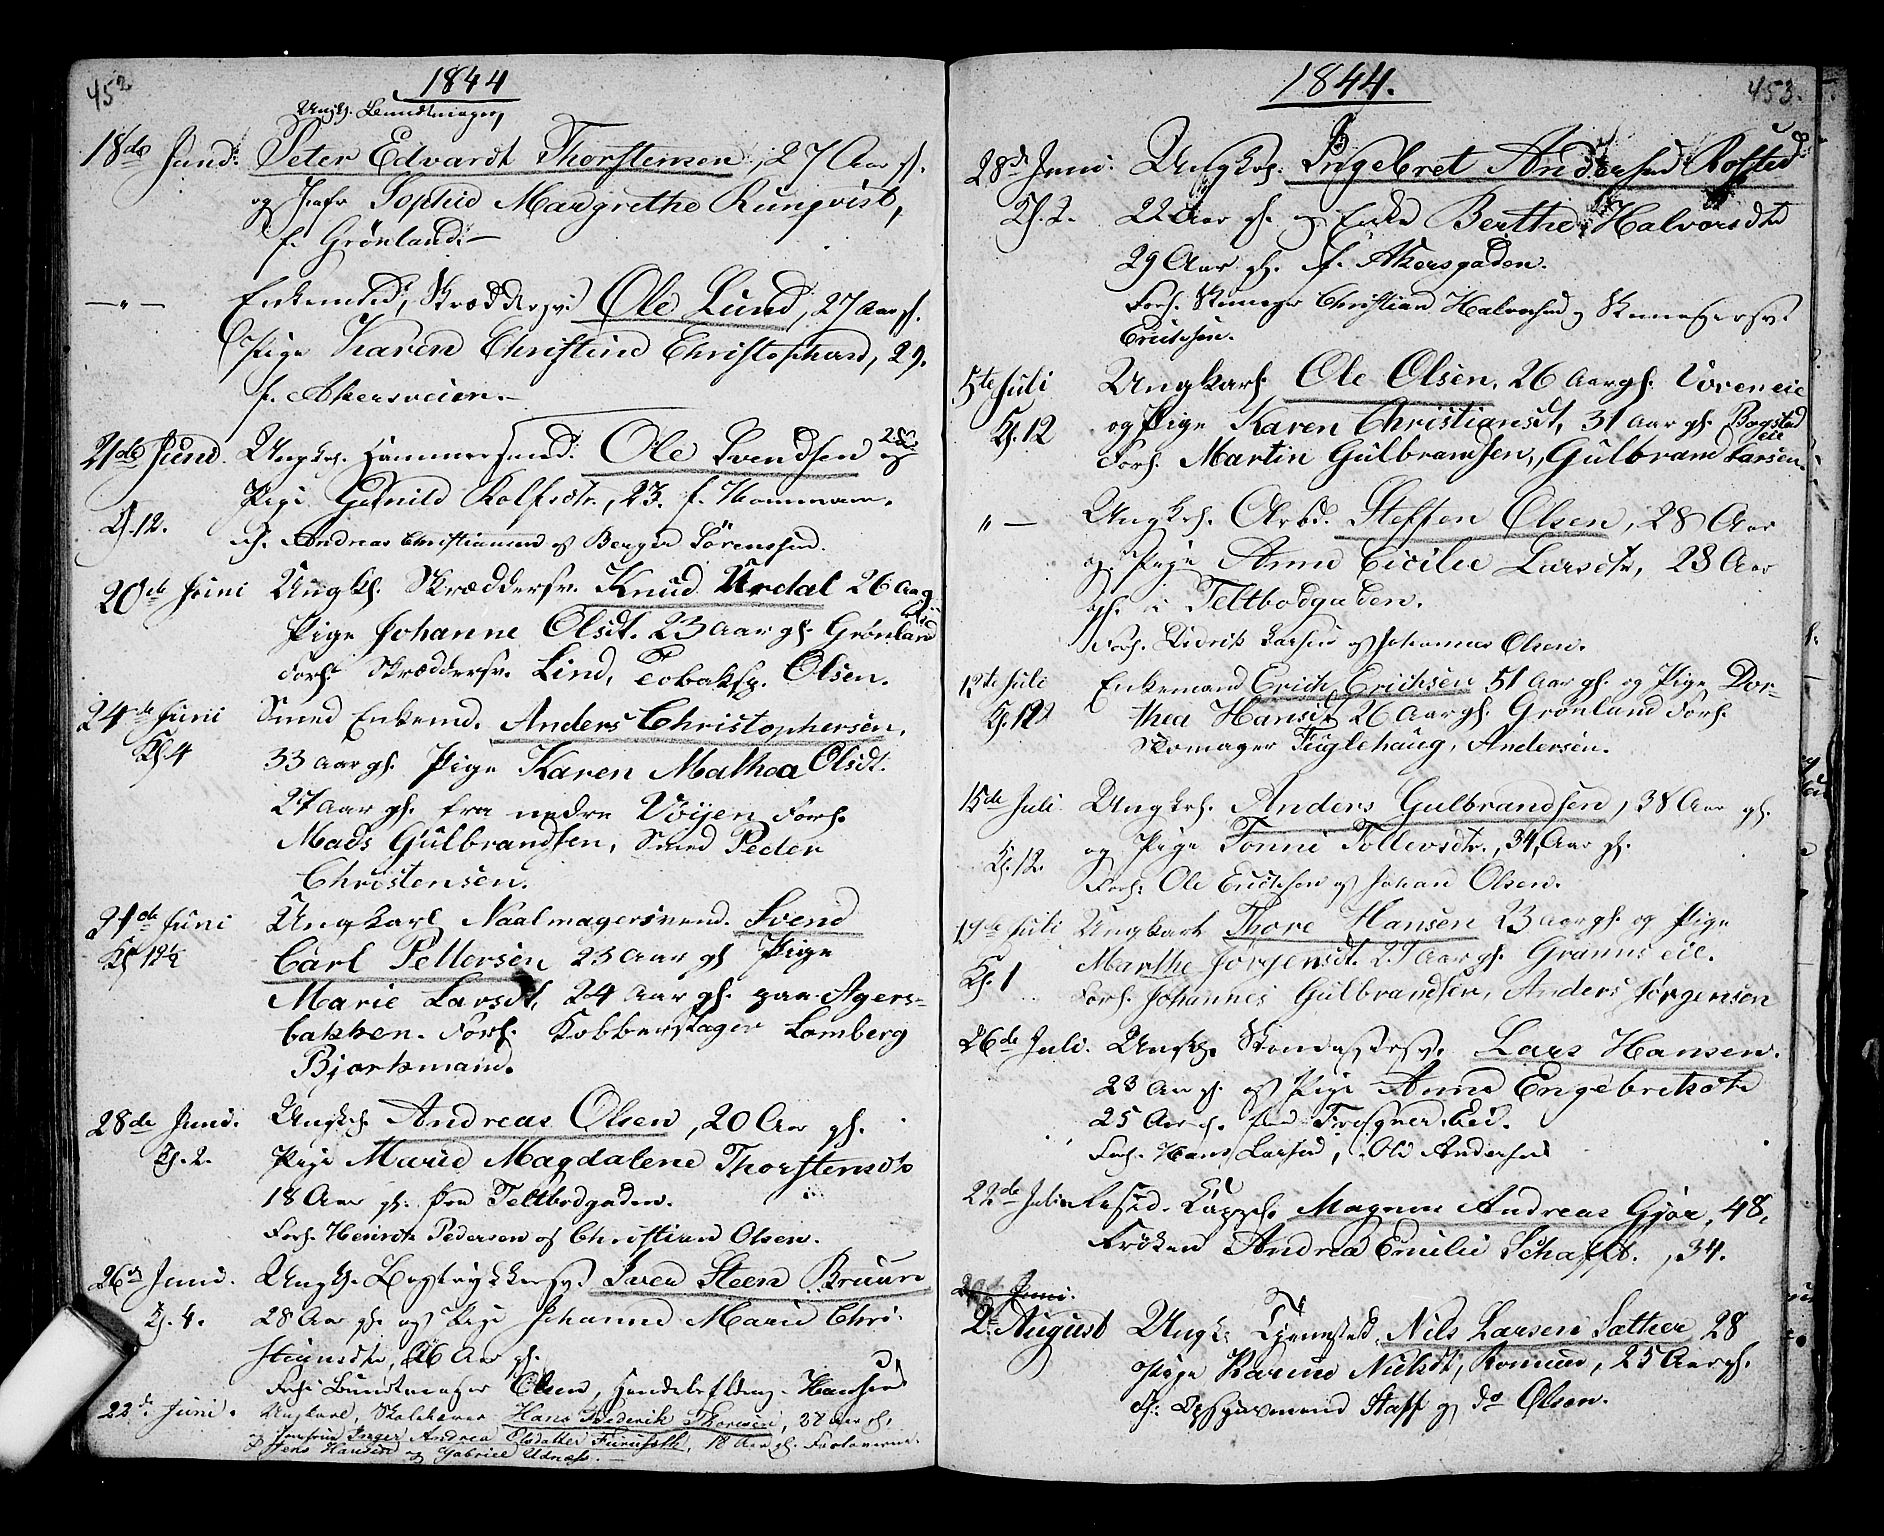 452
1844
Ungk. Bundtmager,
18de Juni. Peter Edvardt Thorstensen, 27 Aar gl.
og Jfr Sophie Margrethe Runqvist,
f. Grönland.
—"— Enkemd, Skræddersv. Ole Lund, 27 Aar gl.
Pige Karen Christine Christophersd, 29.
f. Akersveien.
21de Juni Ungkrl. Hammersmd. Ole Svendsen 28 og
Pige Gunild Rolfsdtr, 23. f.
Kl. 12. Andreas Christiansen og Berger Sörensen.
20de Juni Ungkl. Skræddersv. Knud Urdal 26 Aar
Pige Johanne Olsdt. 23 Aar gl. Grønland
Forl. Skræddersv. Lind, Tobaksf. Olsen.
24de Juni Smed Enkemd. Anders Christophersen,
Kl. 4 33 aar gl. Pige Karen Mathea Olsdt.
27 Aar gl. fra nedre Vöyen Forl.
Mads Gulbrandsen, Smed Peder
Christensen.
21de Juni Ungkarl Naalmagersvend. Svend
Kl 12½ Carl Pettersen 23 aar gl Pige
Marie Larsdt, 24 Aar gl. paa Agers-
bakken. Forl. Kobberslager Lomberg
Bjorkmann.
28de Juni. Ungk. Andreas Olsen, 20 Aar gl.
Kl. 2. Pige Marie Magdalene Thorstensdtr
18 Aar gl. fra Teltbodgaden.
Forl. Henrik Pedersen og Christian Olsen.
26de Juni. Ungk. Bogtrykkersv. Sven Steen Bruun
Kl. 4. 28 Aar gl. og Pige Johanne Marie Chri-
stiansdtr, 26 Aar gl.
Forl. Buntmager Olsen, Hansen
22de Juni. Ungkarl, Skolelærer Hans Frederik Thoresen, 24 Aar gl.
og Jomfrue Inger Andrea Olsdatter Furuseth, 18 Aar gl. Forloverne
Jens Hansen og Gabriel Udnæs.
453.
1844.
28de Juni. Ungkrl. Ingebret Andersen Rofsted
Kl. 2. 22 Aar gl. og Enke Berthe Halvorsdtr
29 Aar gl. f. Akersgaden.
Forl. Skomager Christian Halvorsen og Skomagersv.
Erichsen.
5te Juli Ungkarl Ole Olsen, 26 Aar gl. Voreneie
Kl. 12 og Pige Karen Christiansdt, 31 aar gl. Bogstad
eie
Forl. Martin Gulbrandsen, Gulbrand Larsen.
"— Ungkrl. Arbd. Steffen Olsen, 28 Aar
og Pige Anne Cicilie Larsdtr, 28 Aar
gl. i Teltbodgaden.
Forl. Didrik Larsen og Johannes Olsen.
12te Juli Enkemand Erich Erichsen 51 aar gl. og Pige Dor-
Kl. 12½ thea Hansdt 26 Aar gl. Grønland Forl.
Skomager Fuglehaug, Andersen.
15de Juli Ungkrl. Anders Gulbrandsen, 38 Aar gl.
Kl. 12. og Pige Tonni Tollevsdtr., 34, Aar gl.
Forl. Ole Erichsen og Johan Olsen.
19de Juli Ungkarl Thore Hansen 23 aar gl. og Pige
Kl. 1 Marthe Jörgensdt. 27 aar gl. Grønns eie.
Forl. Johannes Gulbrandsen, Anders Jörgensen
26de Juli. Ungk. Lars Hansen.
23 Aar gl. og Pige Anne Engebretsdtr
25 Aar gl. fra Frogner Eie.
Forl. Hans Larsen, Ole Andersen
22de Juli Magnus Andreas Gjør, 48,
Fröken Andrea Emilie Schafft. , 34.
Juni.
2. August Ungk. Tjenested. Nils Larsen Sæther 28
Pige Karine Nielsdt, Romun, 25 Aar gl.
F: Opsynsmand Staff og do Olsen.